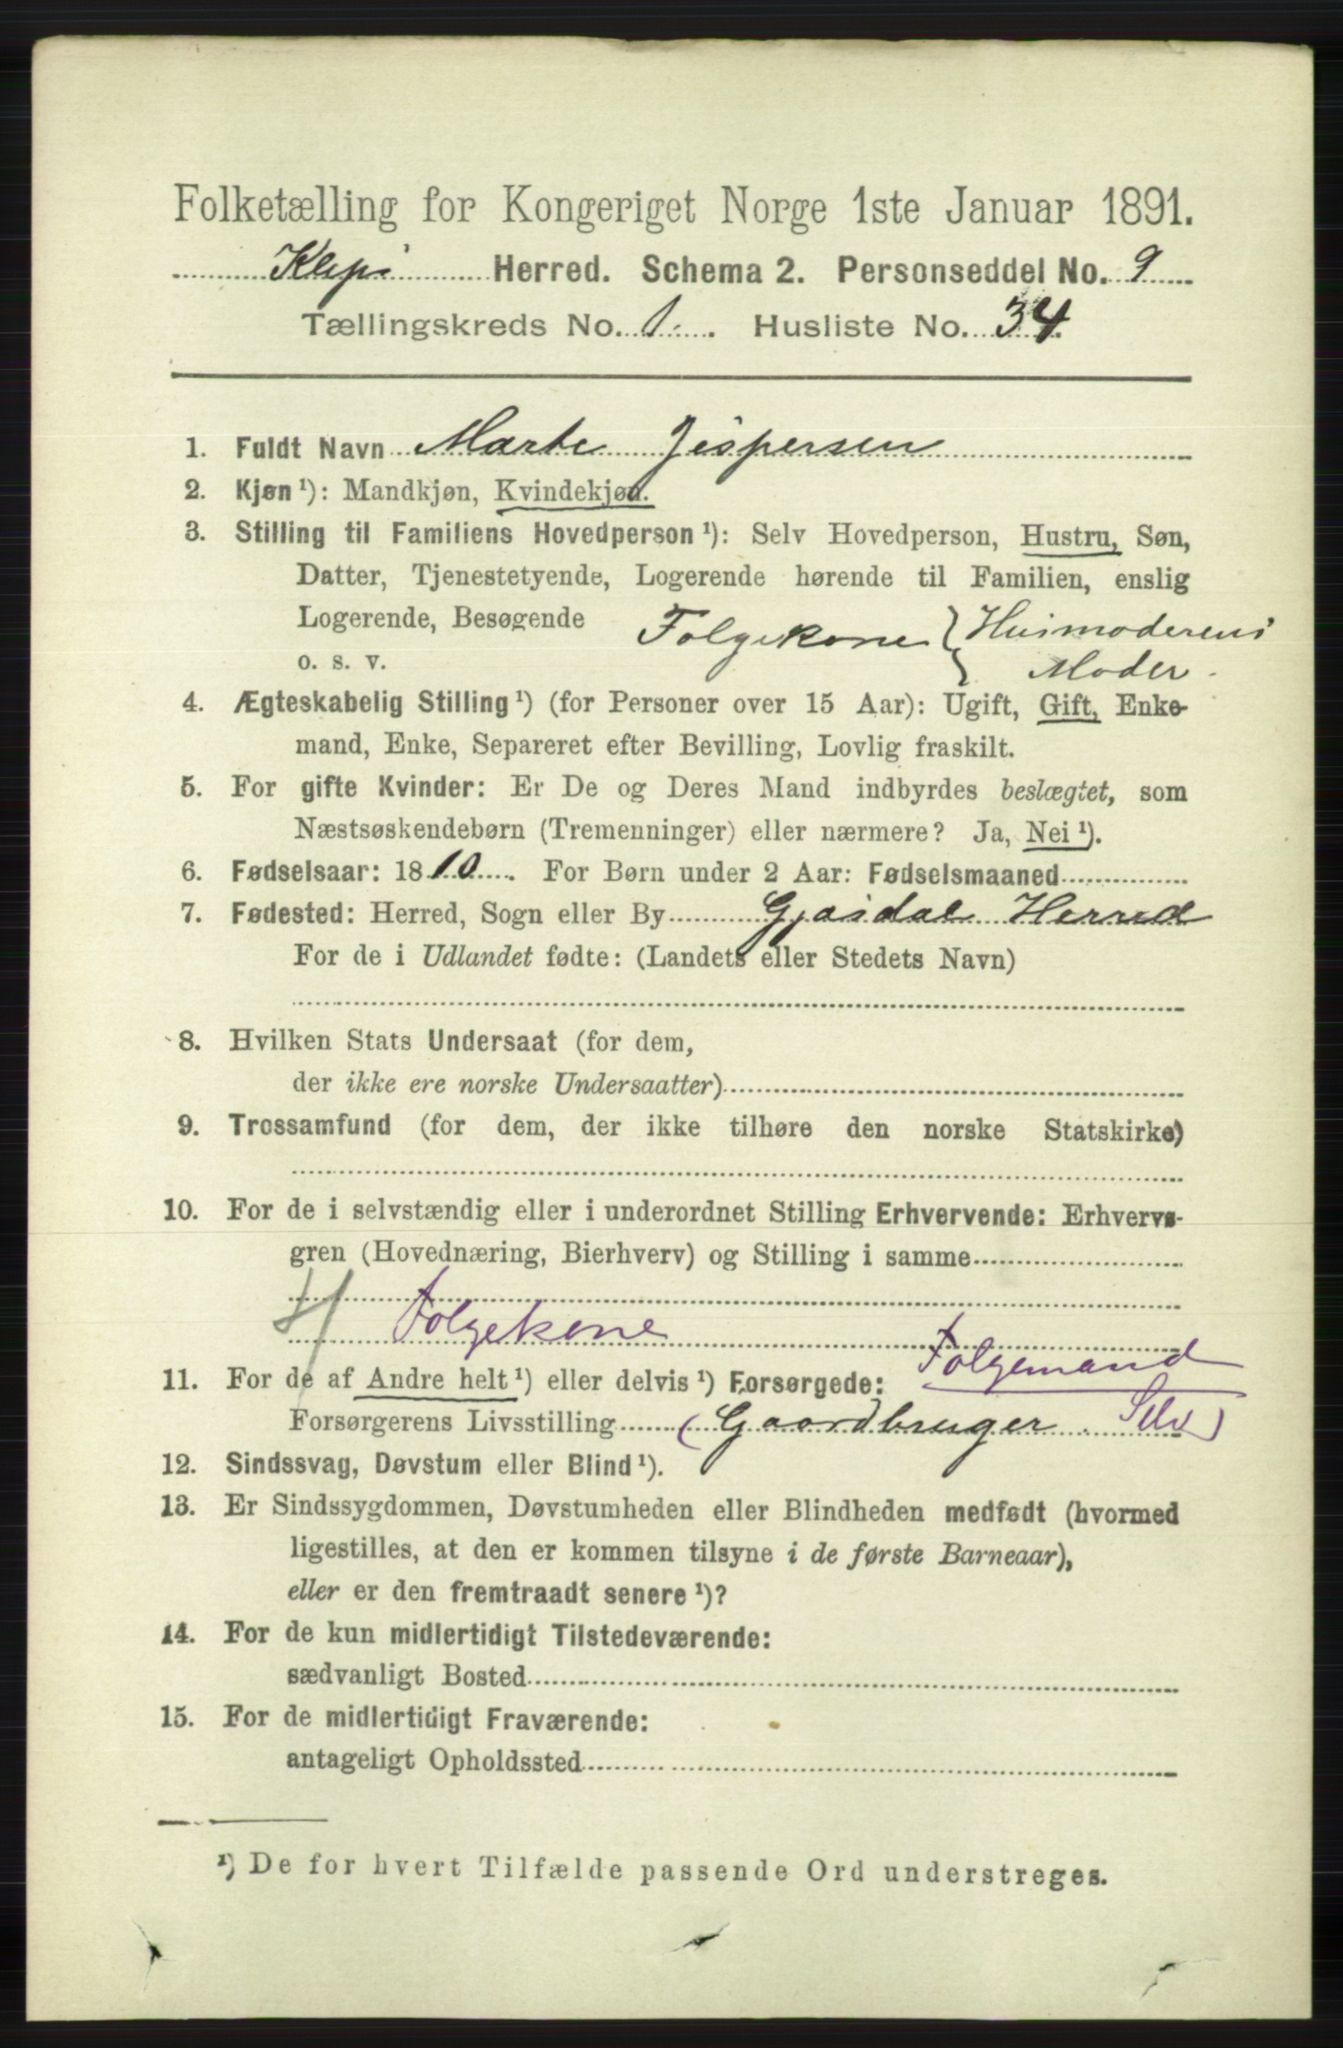 Folketælling for Kongeriget Norge 1ste Januar 1891.
Klepi Herred. Schema 2. Personseddel No. 9
Tællingskreds No. 1. Husliste No. 34
1. Fuldt Navn Marte Jespersen
2. Kjøn ¹): Mandkjøn, Kvindekjøn.
3. Stilling til Familiens Hovedperson ¹): Selv Hovedperson, Hustru, Søn,
Datter, Tjenestetyende, Logerende hørende til Familien, enslig
Logerende, Besøgende Folgekone } Husmoderens
o. s. v. Moder
4. Ægteskabelig Stilling ¹) (for Personer over 15 Aar): Ugift, Gift, Enke-
mand, Enke, Separeret efter Bevilling, Lovlig fraskilt.
5. For gifte Kvinder: Er De og Deres Mand indbyrdes beslægtet, som
Næstsøskendebørn (Tremenninger) eller nærmere? Ja, Nei ¹).
6. Fødselsaar: 1810. For Børn under 2 Aar: Fødselsmaaned
7. Fødested: Herred, Sogn eller By Gjæsdal Herred
For de i Udlandet fødte: (Landets eller Stedets Navn)
8. Hvilken Stats Undersaat (for dem,
der ikke ere norske Undersaatter)
9. Trossamfund (for dem, der ikke tilhøre den norske Statskirke)
10. For de i selvstændig eller i underordnet Stilling Erhvervende: Erhvervs-
gren (Hovednæring, Bierhverv) og Stilling i samme
Folgekone
11. For de af Andre helt ¹) eller delvis ¹) Forsørgede: Folgemand
Forsørgerens Livsstilling (Gaardbruger. Selv)
12. Sindssvag, Døvstum eller Blind ¹).
13. Er Sindssygdommen, Døvstumheden eller Blindheden medfødt (hvormed
ligestilles, at den er kommen tilsyne i de første Barneaar),
eller er den fremtraadt senere ¹)?
14. For de kun midlertidigt Tilstedeværende:
sædvanligt Bosted
15. For de midlertidigt Fraværende:
antageligt Opholdssted
¹) De for hvert Tilfælde passende Ord understreges.